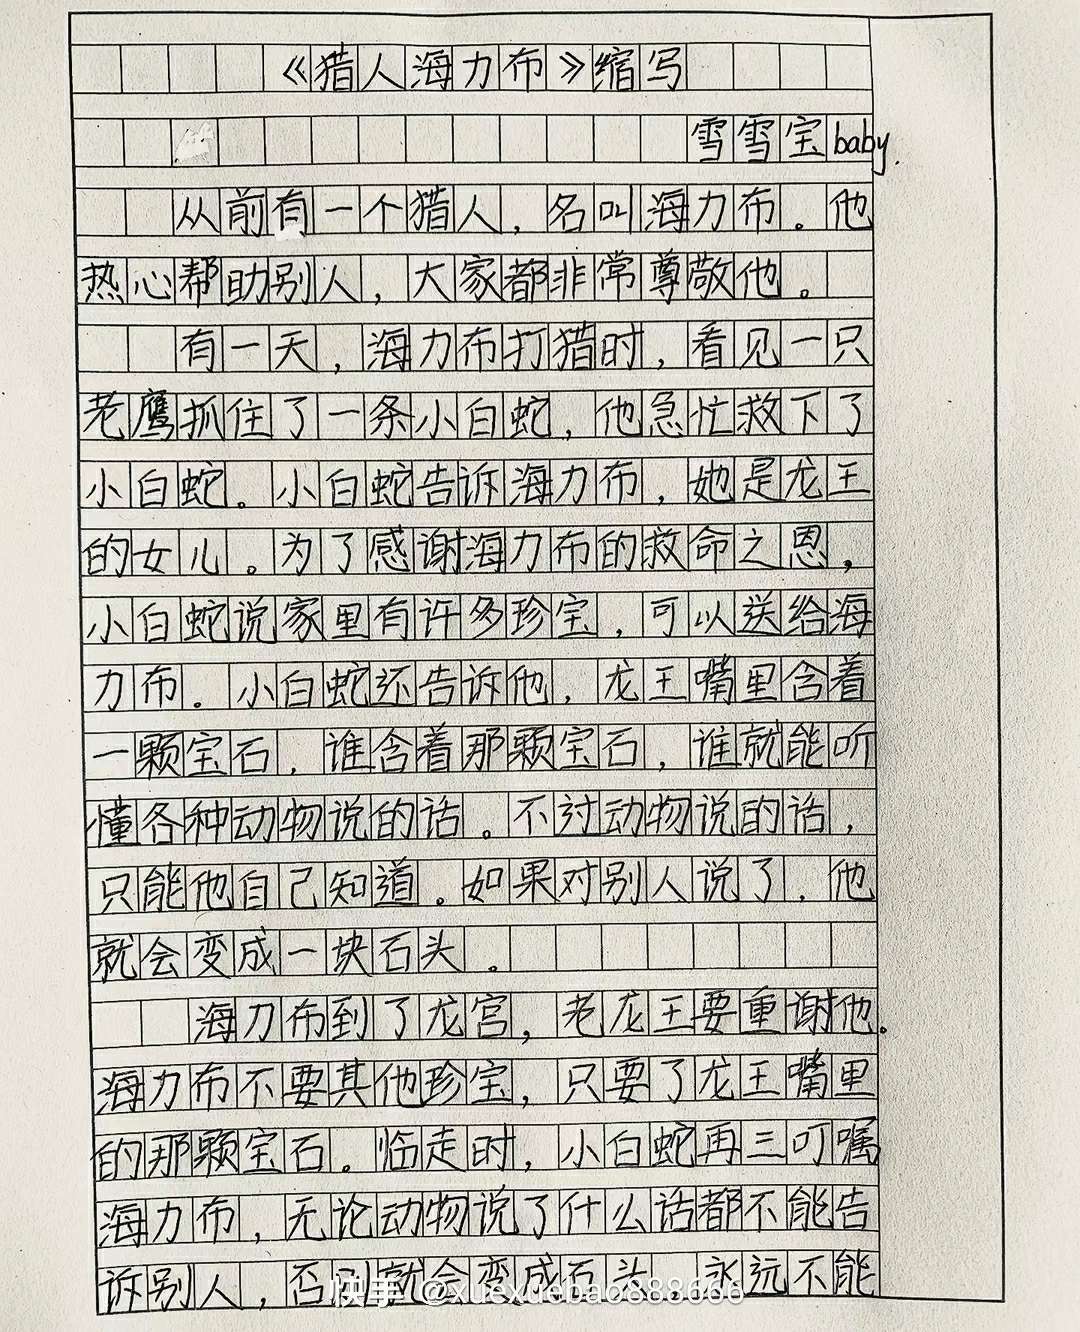 《猎人海力布》缩写
雪雪宝baby.
从前有一个猎人，名叫海力布。他
热心帮助别人，大家都非常尊敬他。
有一天，海力布打猎时，看见一只
老鹰抓住了一条小白蛇，他急忙救下了
小白蛇。小白蛇告诉海力布，她是龙王
的女儿。为了感谢海力布的救命之恩，
小白蛇说家里有许多珍宝，可以送给海
力布。小白蛇还告诉他，龙王嘴里含着
一颗宝石，谁含着那颗宝石，谁就能听
懂各种动物说的话。不过动物说的话，
只能他自己知道。如果对别人说了，他
就会变成一块石头。
海力布到了龙宫，老龙王要重谢他。
海力布不要其他珍宝，只要了龙王嘴里
的那颗宝石。临走时，小白蛇再三叮嘱
海力布，无论动物说了什么话都不能告
诉别人，否则就会变成石头，永远不能
快手 @xuexuebao888666